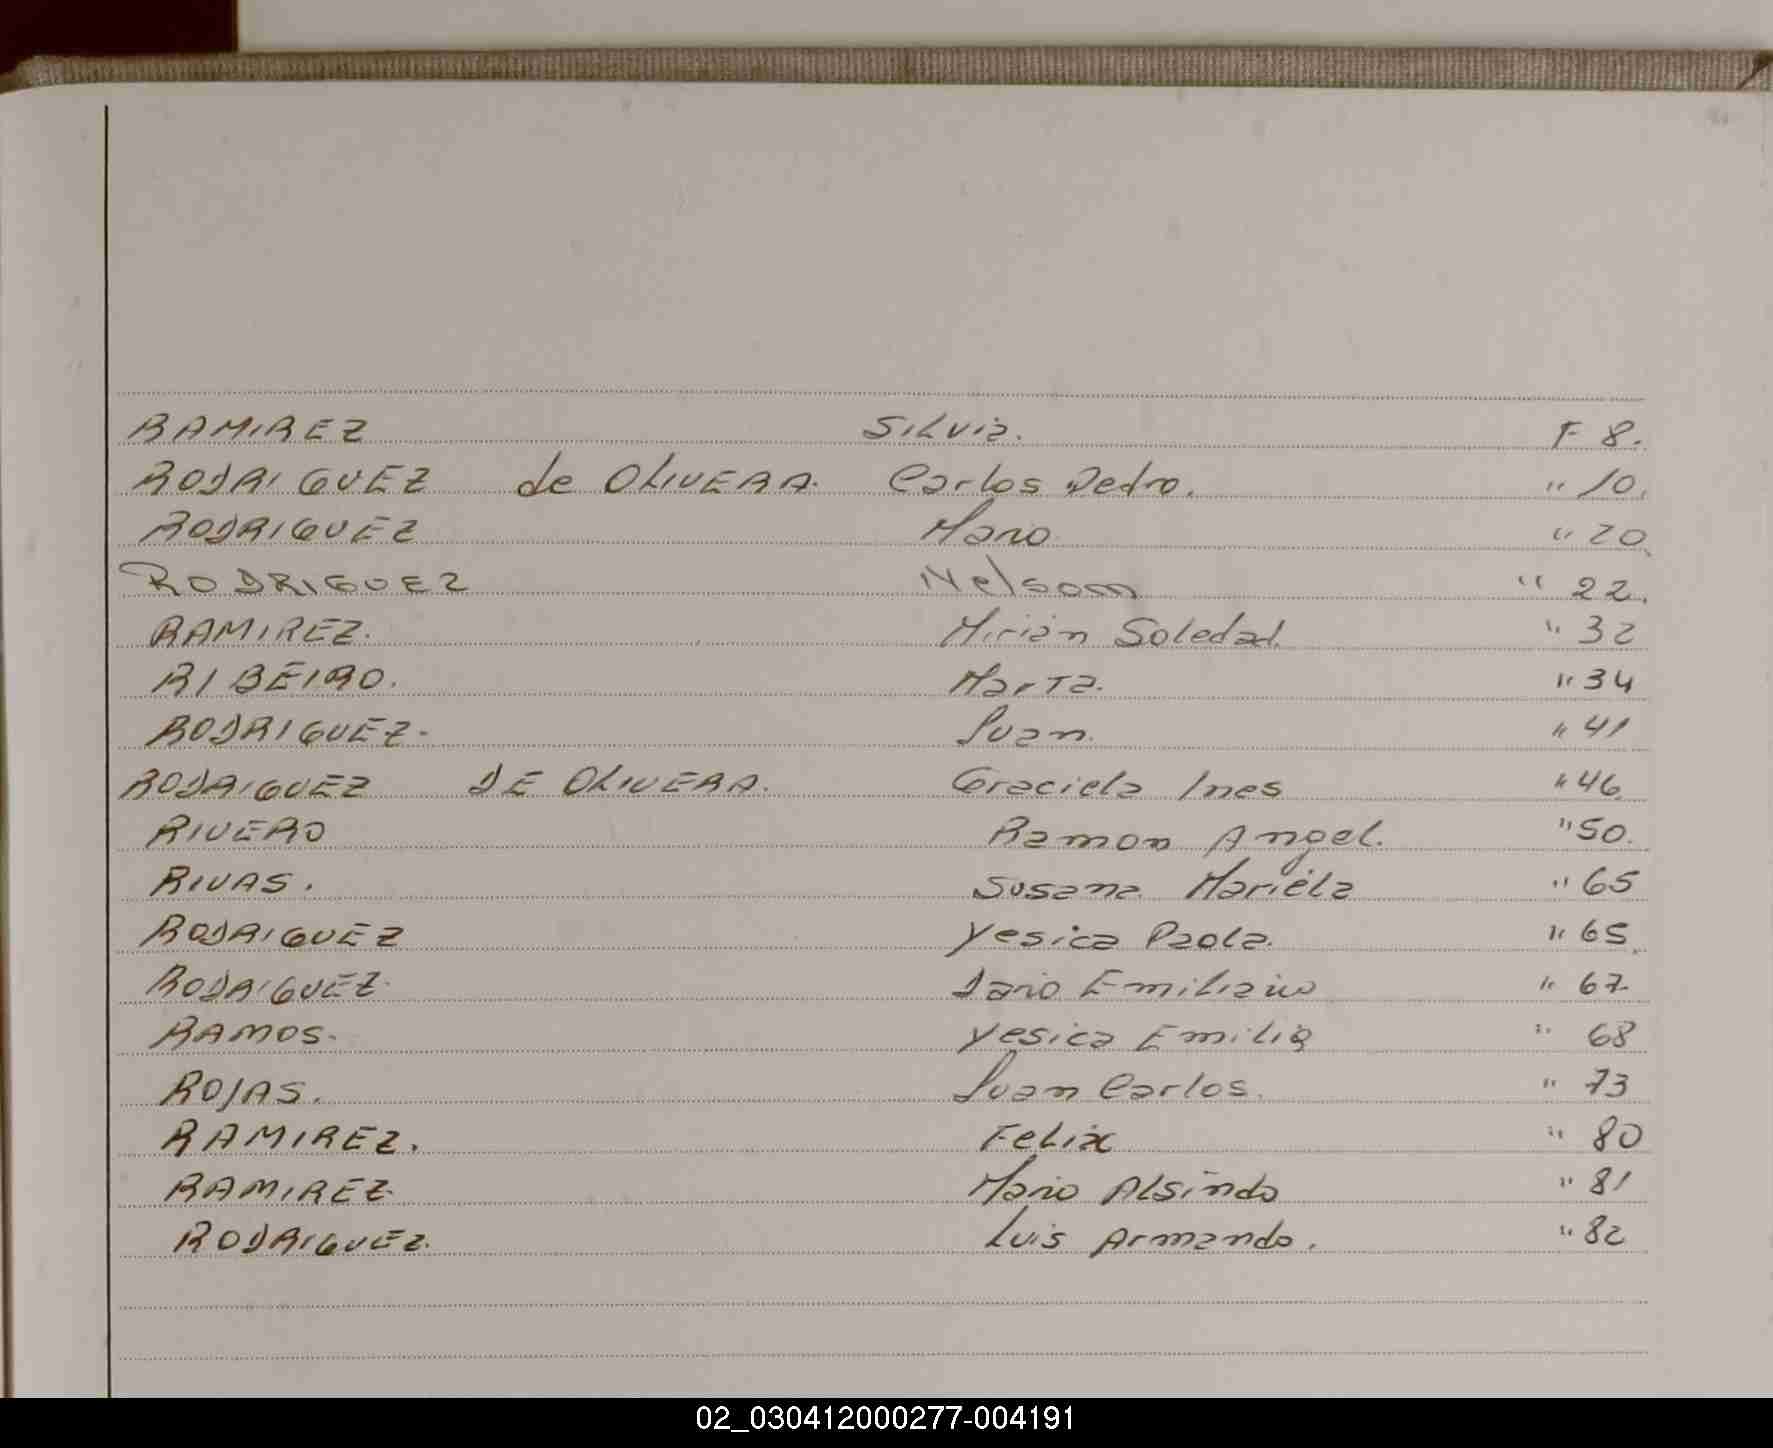 RAMIREZ Silvia. F 8.
RODRIGUEZ de OLIVERA. Carlos Pedro. " 10.
RODRIGUEZ Mario " 20
RODRIGUEZ Nelsom " 22.
RAMIREZ. Mirian Soledad. " 32
RIBEIRO. Marta. " 34
RODRIGUEZ. Juan. " 41
RODRIGUEZ DE OLIVERA. Graciela Ines " 46.
RIVERO Ramon Angel. " 50.
RIVAS. Susana Mariela " 65
RODRIGUEZ Yesica Paola. " 65
RODRIGUEZ. Dario Emiliano " 67
RAMOS. Yesica Emilia " 68
ROJAS. Juan Carlos. " 73
RAMIREZ. Felix " 80
RAMIREZ. Mario Alsindo " 81
RODRIGUEZ. Luis Armando. " 82
02_030412000277-004191